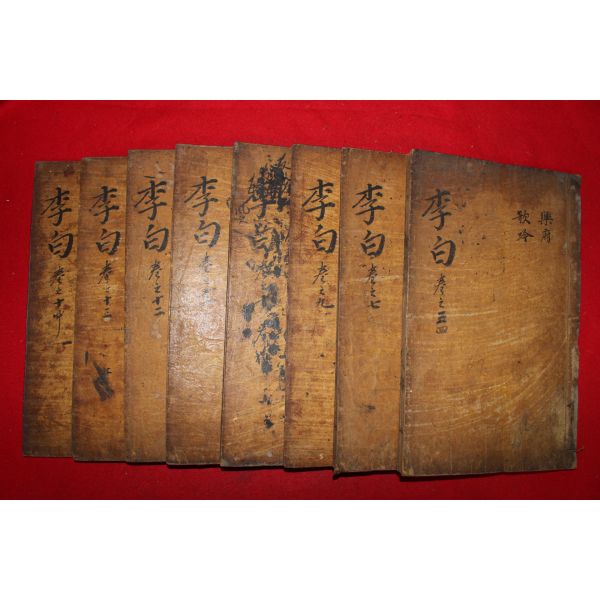 樂府
歌吟
李白 卷之三四
李白 卷之七
李白 卷之九
李白
李白 卷之
李白 卷之十二
李白 卷之十三
李白 卷之十